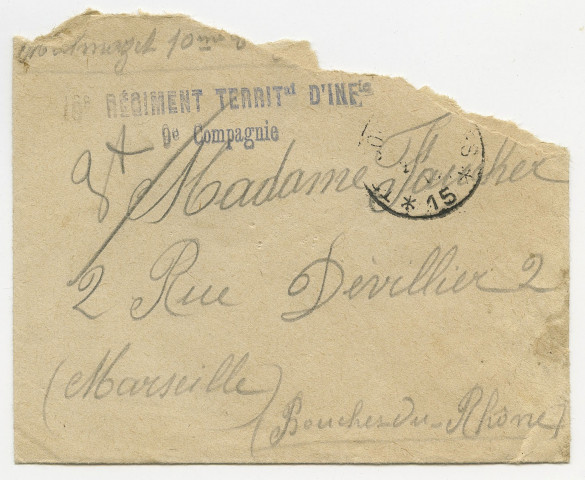 10me
16e RÉGIMENT TERRITal D'INFie
9e Compagnie
Madame Faucher
2 Rue Dévillier 2
(Marseille)
(Bouches-du-Rhône)
* 15 *